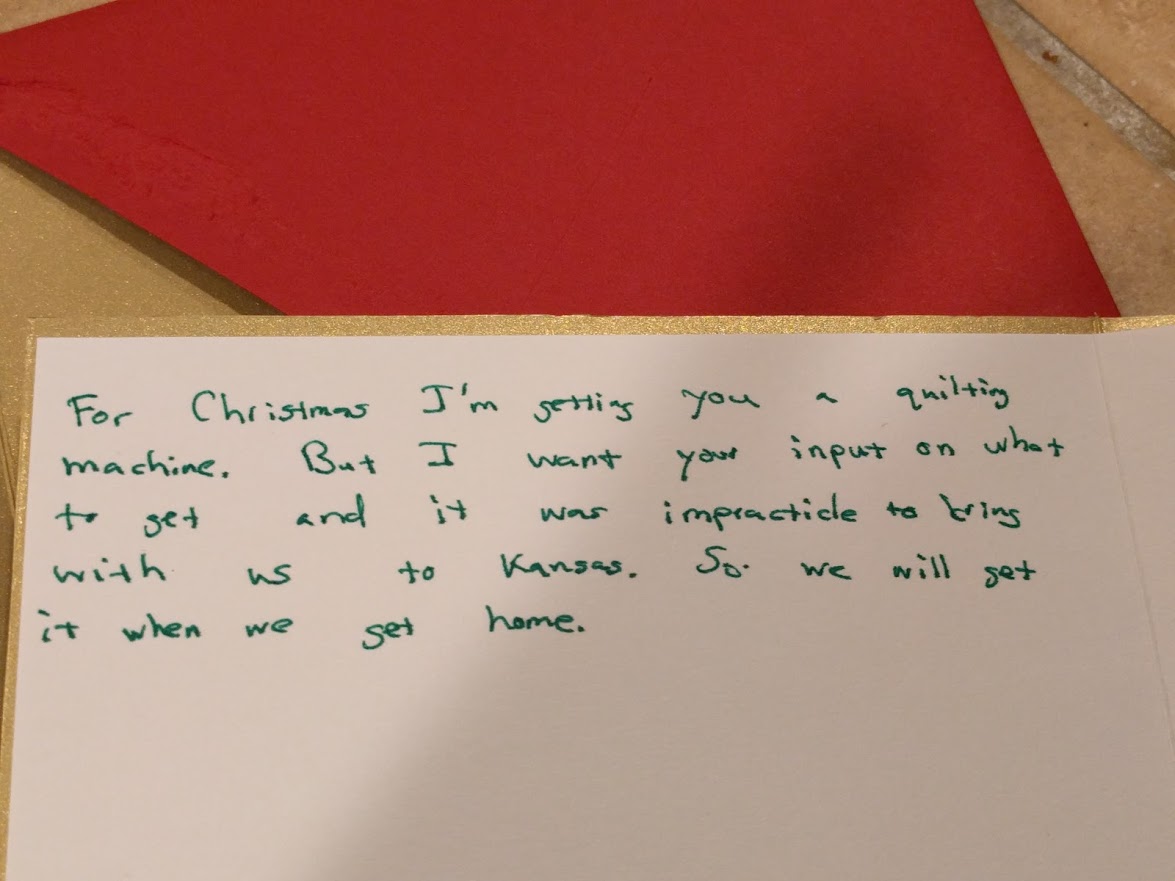 For Christmas I'm getting you a quilting
machine. But I want your input on what
to get and it was impracticle to bring
with us to Kansas. So. we will get
it when we get home.